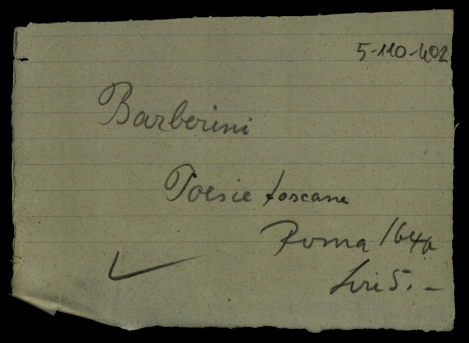 5-110-402
Barberini
Poesie toscane
Roma 1640
Lire 5.-